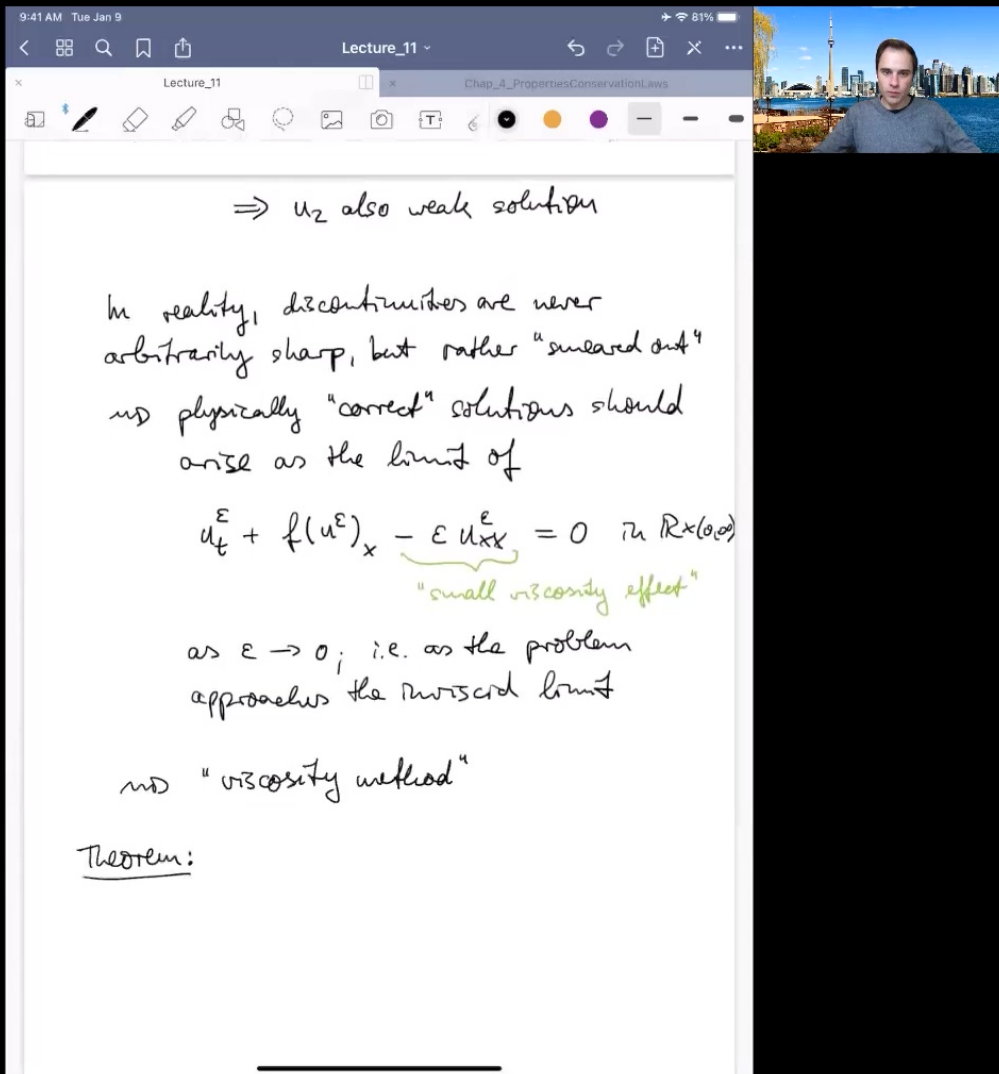 9:41 AM Tue Jan 9
81%
Lecture_11
Lecture_11
Chap_4_PropertiesConservationLaws
T
⇒ u₂ also weak solution
In reality, discontinuities are never
arbitrarily sharp, but rather "smeared out"
⇝ physically "correct" solutions should
arise as the limit of
u_t^ε + f(u^ε)_x − ε u_xx^ε = 0 in ℝ×(0,∞)
"small viscosity effect"
as ε → 0; i.e. as the problem
approaches the inviscid limit
⇝ "viscosity method"
Theorem: